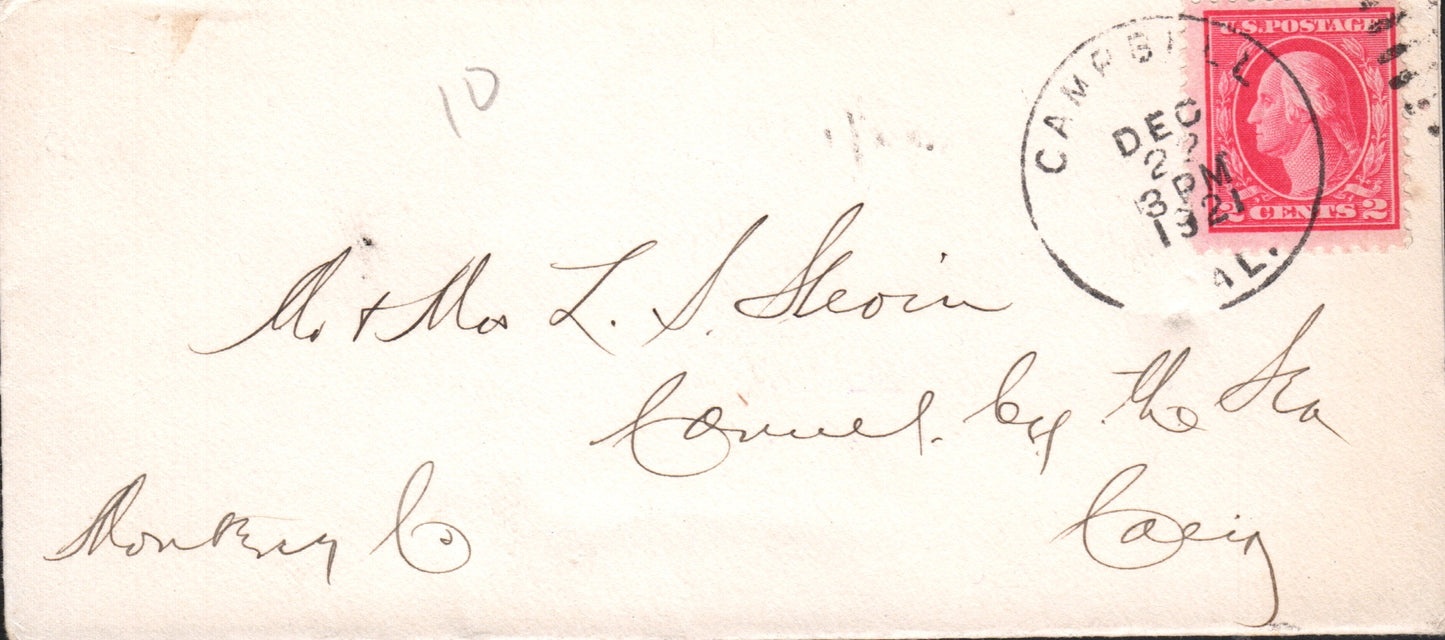 10
U.S. POSTAGE
2 CENTS 2
CAMPBELL
DEC
22
3 PM
1921
CAL.
Mr + Mrs L. S. Slevin
Carmel. by the Sea
Monterey Co
Calif